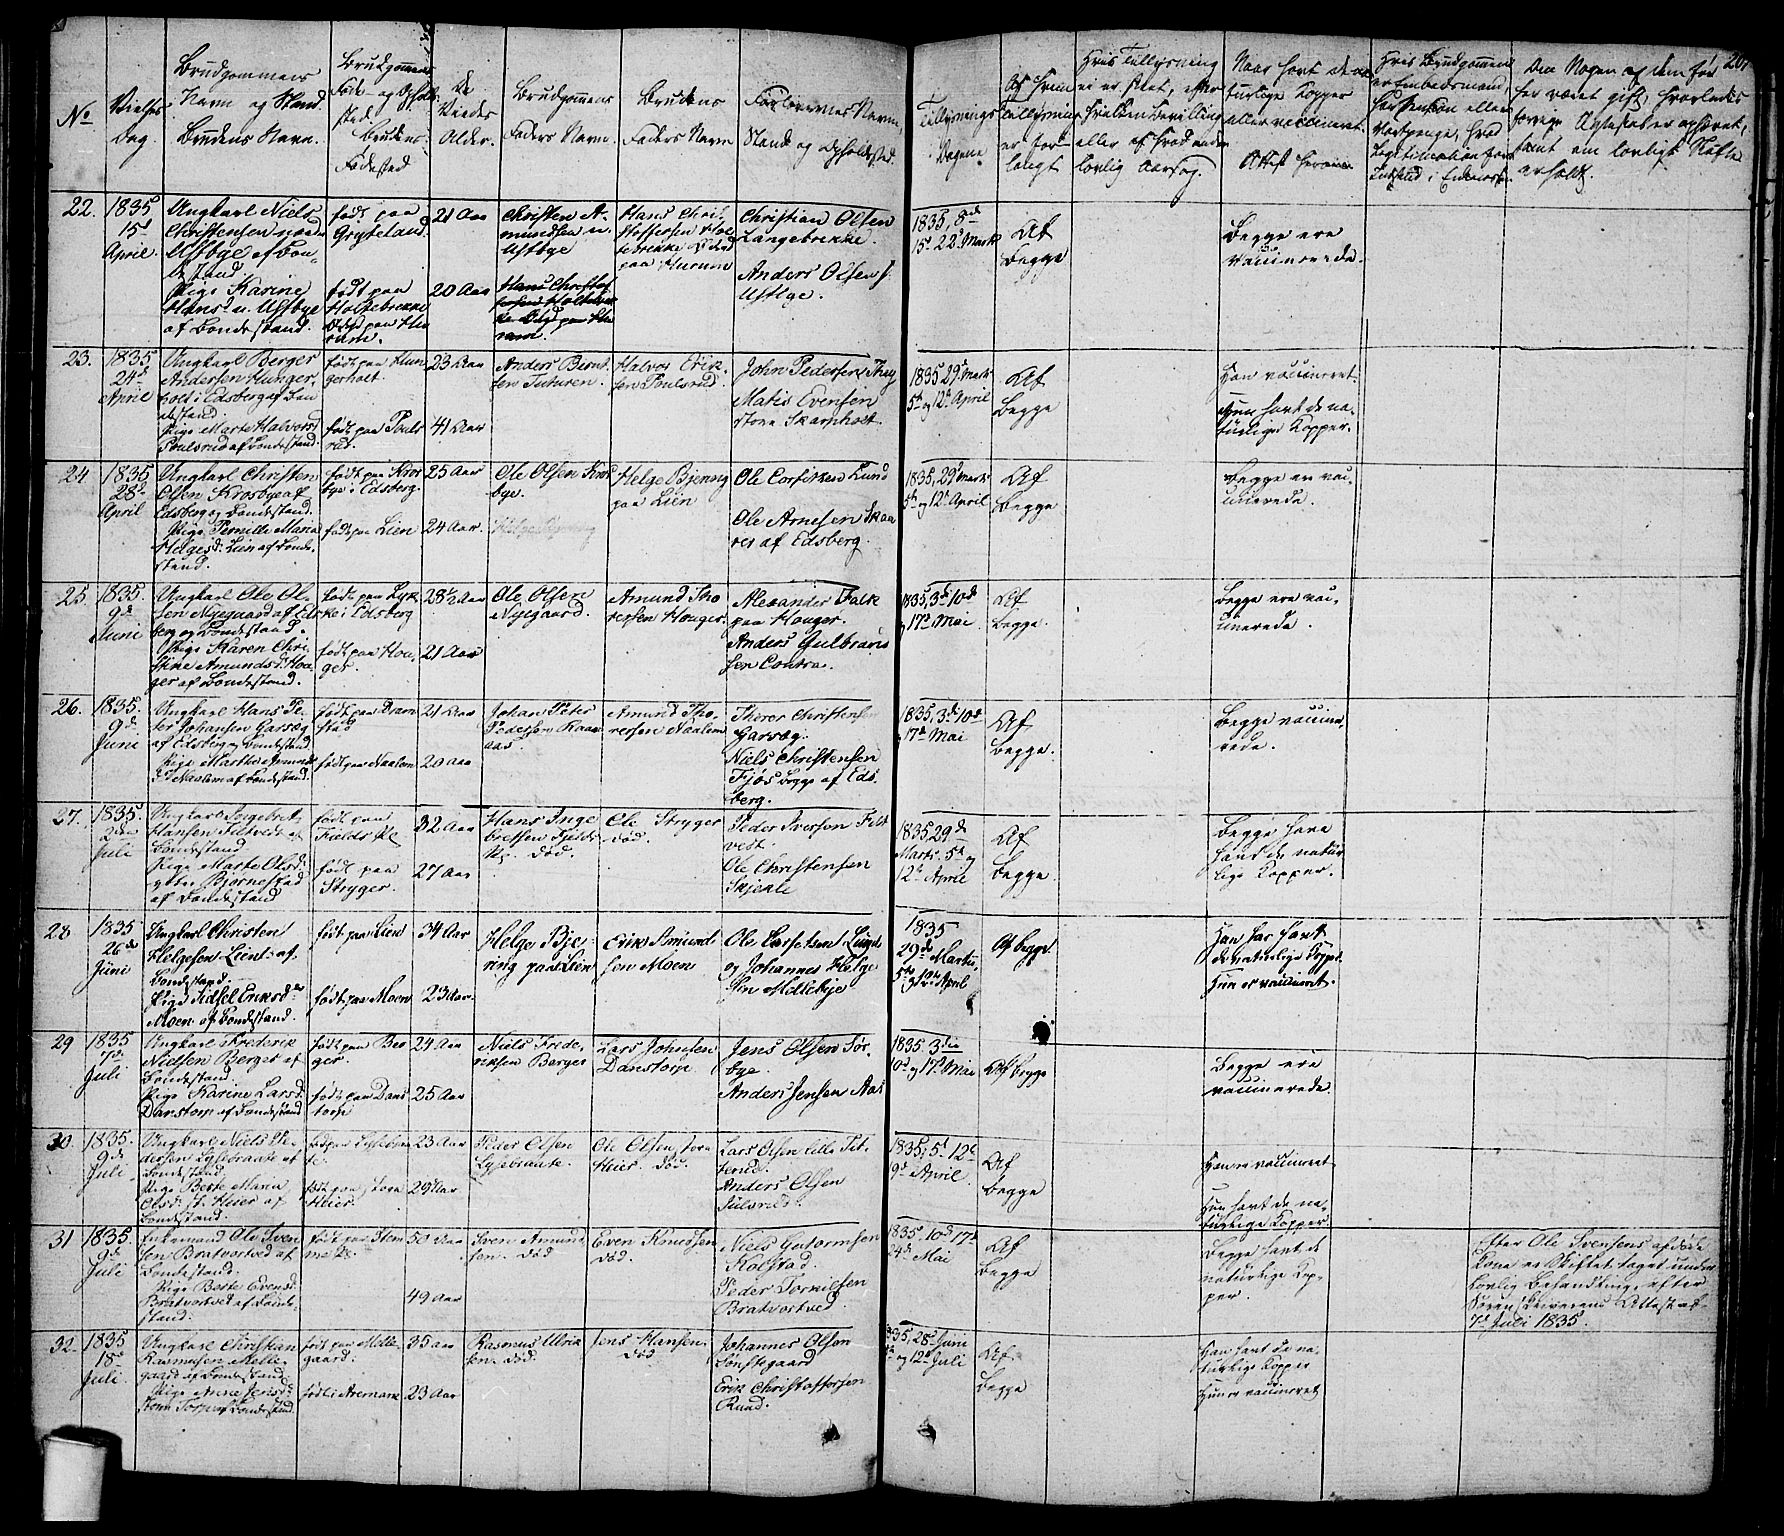 No
Vielses
Dag.
Brudgommens
Navn og Stand.
Brudens Navn.
Brudgommens
Føde- og Opholds
sted.
Brudens
Fødested
De
Viedes
Alder.
Brudgommens
Faders Navn.
Brudens
Faders Navn
Forlovernes Navne,
Stand og Opholdssted.
Tillysnings
Dagene
Af hvem
Tillysning
er for-
langt
Hvis Tillysning
ei er skeet, efter
hvilken Bevilling
eller af hvad anden
lovlig Aarsag.
Naar havt de na-
turlige Kopper
eller vaccineret.
Attest herom
Hvis Brudgommen
er Embedsmand,
har Pension eller
Ventepenge, hvad
Legitimation for
Indskud i Enkekassen
Om Nogen af dem før
har været gift, hvorledes
forrige Ægteskab er ophævet,
samt om lovligt Skifte
er holdt.
22.
1835
15de
April
Ungkarl Niels
Christensen nordre
Ustbye af Bon-
destand
Pige Karine
Hansd. n. Ustbye
af Bondestand.
født paa
Gryteland.
født paa
Holtebrekke
Odegd paa Hu
rum.
21 Aar
20 Aar
Christen A-
mundsen n.
Ustbye
Hans Christof
fersen Holtebrek
ke Odegd paa Hu
rum.
Hans Chri-
stoffersen Hol
tebrekke Odegd
paa Hurum
Christian Olsen
Langebrekke.
Anders Olsen s.
Ustbye.
1835, 8de
15de 22de Marts
Af
Begge
Begge ere
vaccinerede.
23.
1835
24de
April
Ungkarl Berger
Andersen Hunger-
holt i Edsberg af Bon
destand.
Pige Marte Halvorsd.
Poulsrud af Bondestand.
født paa Hun
gerholt.
født paa Pouls
rud.
23 Aar
41 Aar
Anders Bernt
sen Tuturen.
Halvor Erik-
sen Poulsrud.
John Pedersen Thu
Matis Evensen
store Skarnholt.
1835 29de Marts
5te og 12te April
Af
Begge
Han vaccineret.
Hun havt de na-
turlige Kopper.
24
1835
28de
April
Ungkarl Christen
Olsen Krosbye af
Edsberg og Bondestand.
Pige Pernille Maria
Helgesd. Lien af Bonde-
stand.
født paa Kros
bye i Edsberg.
født paa Lien
25 Aar
24 Aar
Ole Olsen Kros
bye.
Helge Bjerring
paa Lien
Ole Corfitzen Lund
Ole Arnesen Skaa
rer af Edsberg.
1835, 29de Marts
5te og 12te April
Af
Begge
Begge er vac-
cinerede.
25.
1835.
9de
Juni
Ungkarl Ole Ol-
sen Nyegaard af Eds
berg og Bondestand.
Pige Karen Chri-
stine Amundsd. Hou-
ger af Bondestand.
født paa Lyk
ke i Edsberg
født paa Hou-
ger.
28½ Aar
21 Aar
Ole Olsen
Nyegaard.
Amund Tho
resen Houger.
Alexander Falk
paa Houger.
Anders Gulbrand
sen Contra.
1835, 3de 10de
og 17de Mai
Af
Begge.
Begge ere vac-
cinerede.
26.
1835.
9de
Juni
Ungkarl Hans Pe-
ter Johansen Garsæg
af Edsberg og Bondestand.
Pige Marthe Amunds
d. Naalem af Bondestand.
født paa Dram
stad
født paa Naalem
21 Aar
20 Aar
Johan Peter
Pedersen Kaas
aas.
Amund Tho-
resen Naalem
Thorer Christensen
Garsæg.
Niels Christensen
Fjøs begge af Eds-
berg.
1835, 3de 10de
og 17de Mai
Af
Begge.
Begge vaccine-
rede.
27.
1835.
2den
Juli
Ungkarl Ingebret
Hansen Filtvedt af
Bondestand.
Pige Marte Olsd.
ytre Bjørnestad
af Bondestand
født paa
Fieldskle
født paa
Stryger.
32 Aar
27 Aar
Hans Inge
bretsen Fjelds
kle. død.
Ole Stryger
død.
Peder Iversen Filt
vedt.
Ole Christensen
Skjekle
1835 29de
Marts. 5te og
12te April
Af
Begge.
Begge have
havt de natur
lige Kopper.
28
1835
26de
Juni
Ungkarl Christen
Helgesen Lient af
Bondestand.
Pige Sidsel Eriksd.
Moen af Bondestand.
født paa Lien
født paa Moen
34 Aar
23 Aar
Helge Bjer-
ring paa Lien
Erik Amund
sen Moen
Ole Corfetsen Lund
og Johannes Helge
sen Mellebye
1835
29de Martii,
5te og 12te April
Af begge
Han har havt
de naturlige Kopper.
Hun er vaccineret.
29
1835
7de
Juli
Ungkarl Frederik
Nielsen Berger af
Bondestand.
Pige Karine Larsd.
Danstorp af Bondestand
født paa Ber
ger.
født paa Dans
torp
24 Aar
25 Aar
Niels Frede-
riksen Berger
Lars Johnsen
Danstorp
Jens Olsen Sør-
bye.
Anders Jensen Aas
1835 3die
10de og 17de Mai
Af begge
Begge ere
vaccinerede.
30
1835.
9de
Juli
Ungkarl Niels Pe-
dersen Lysebraate af
Bondestand.
Pige Berte Maria
Olsd. st. Heier af
Bondestand.
født paa Lysebraa
te.
født paa store
Heier.
23 Aar
29 Aar
Peder Olsen
Lysebraate.
Ole Olsen store
Heier. død.
Lars Olsen lille Tit-
terud.
Anders Olsen
Julsrud.
1835, 5te 12te
9de April.
Af
Begge
Han er vaccineret
Hun havt de na-
turlige Kopper
31
1835.
9de
Juli
Enkemand Ole Sven
sen Bratvortved af
Bondestand.
Pige Berte Evensd.
Bratvortved af Bonde-
stand.
født paa Stom
me
50 Aar
49 Aar
Sven Amund
sen. død
Even Knudsen
død.
Niels Gutormsen
Kolstad.
Peder Torkilsen
Bratvortved.
1835 10de 17de
24de Mai
Af
Begge
Begge havt de
naturlige Kop-
per.
Efter Ole Svensens afdøde
Kone er Skiftet taget under
lovlig Behandling, efter
Sorenskriverens Attest af
7de Juli 1835.
32.
1835
18de
Juli.
Ungkarl Christian
Rasmusen Melle-
gaard af Bondestand
Pige Anne Jensd.
store Torp af Bondestand.
født paa Melle-
gaard.
født i Aremark
35 Aar
23 Aar
Rasmus Ulrik
sen. død.
Jens Hansen.
død
Johannes Olsen
Tønstegaard
Erik Christoffersen
Ruud.
1835, 28de Juni
5te og 12te Juli
Af
Begge
Han havt de na-
turlige Kopper
Hun er vaccineret